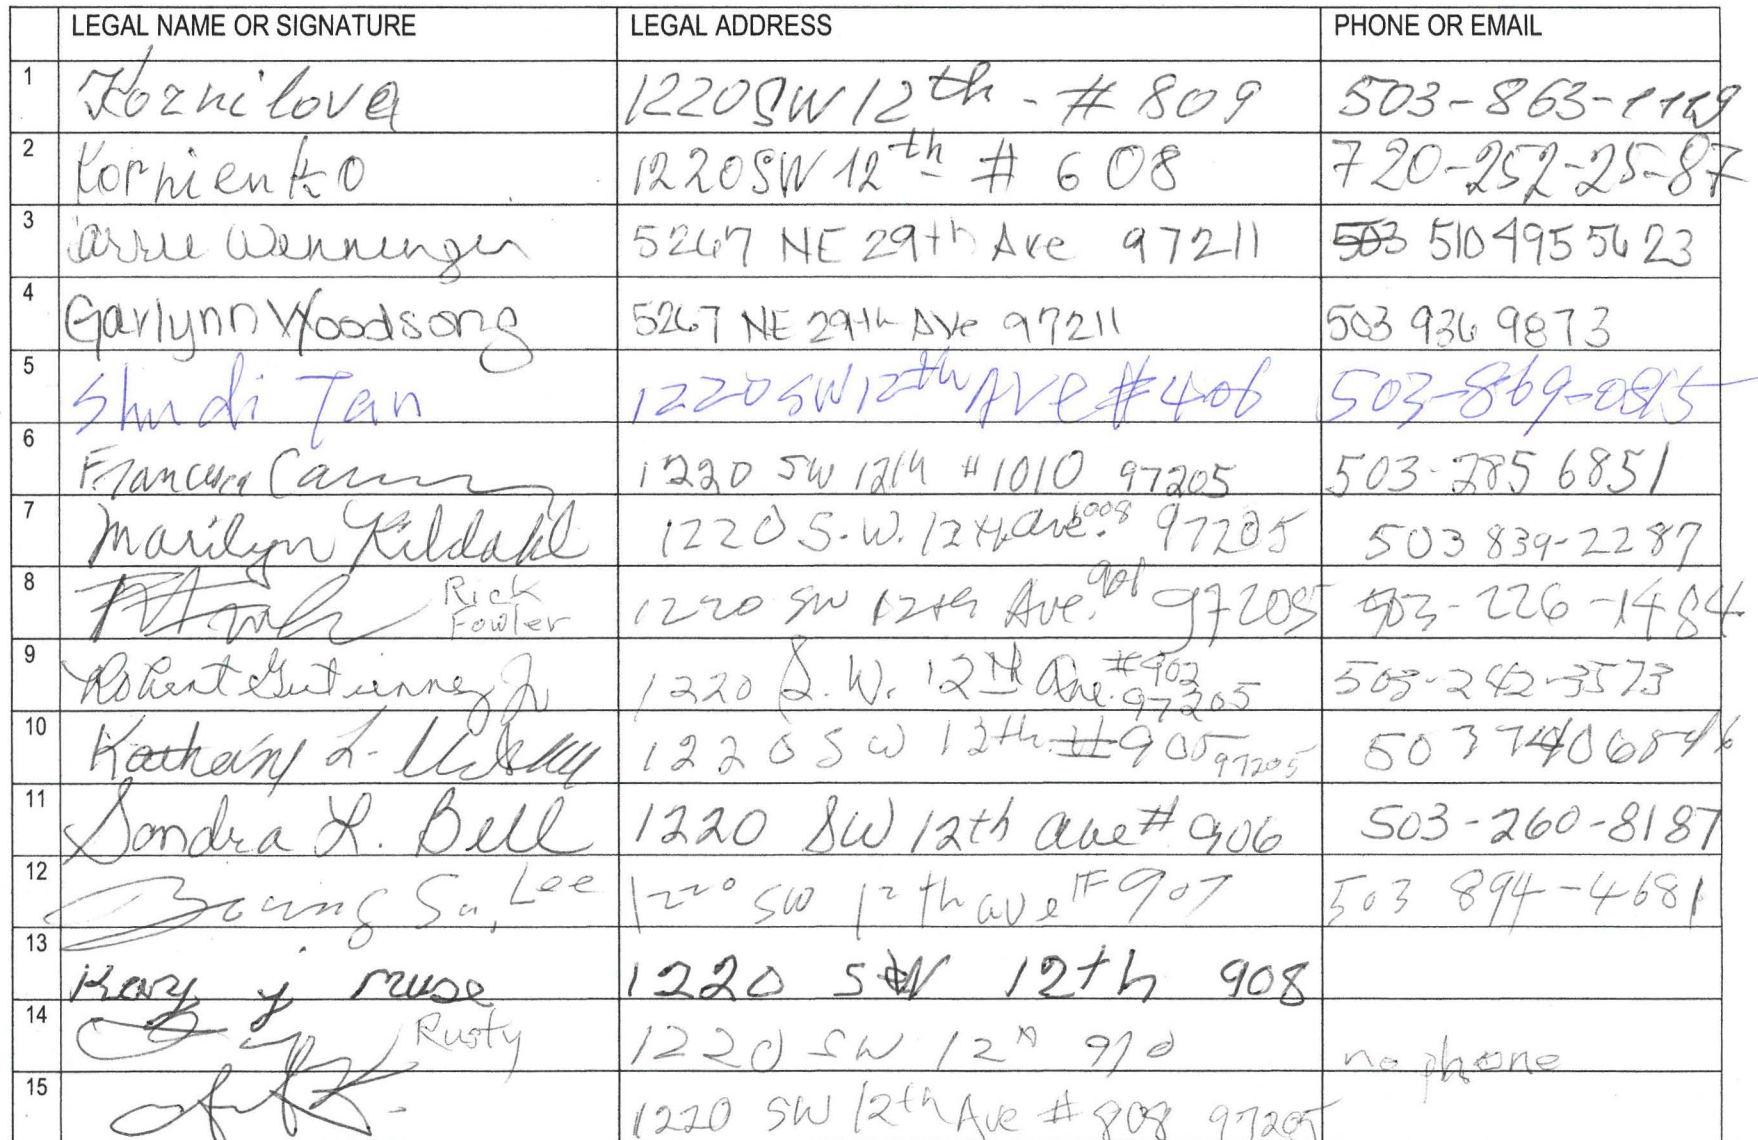 LEGAL NAME OR SIGNATURE LEGAL ADDRESS PHONE OR EMAIL
1 Kornilova 1220 SW 12th - # 809 503-863-1119
2 Kornienko 1220 SW 12th # 608 720-252-25-87
3 Carrie Wenninger 5267 NE 29th Ave 97211 503 510 495 5623
4 Garlynn Woodsong 5267 NE 29th Ave 97211 503 936 9873
5 Shudi Tan 1220 SW 12th AVE # 406 503-869-0815
6 Francesca 1220 SW 12th #1010 97205 503-285 6851
7 Marilyn Kildahl 1220 S.W. 12th ave. 1008 97205 503 839-2287
8 Rick Fowler 1220 SW 12th Ave. 901 97205 503-226-1484
9 Robert Gutierrez Jr 1220 S.W. 12th Ave. #902 97205 503-242-3573
10 L. 1220 SW 12th #905 97205 503
11 Sandra L. Bell 1220 SW 12th ave # 906 503-260-8187
12 Su, Lee 1220 SW 12th ave # 907 503 894-4681
13 Kary j muse 1220 SW 12th 908
14 Rusty 1220 SW 12th 910 no phone
15 1220 SW 12th Ave # 808 97205